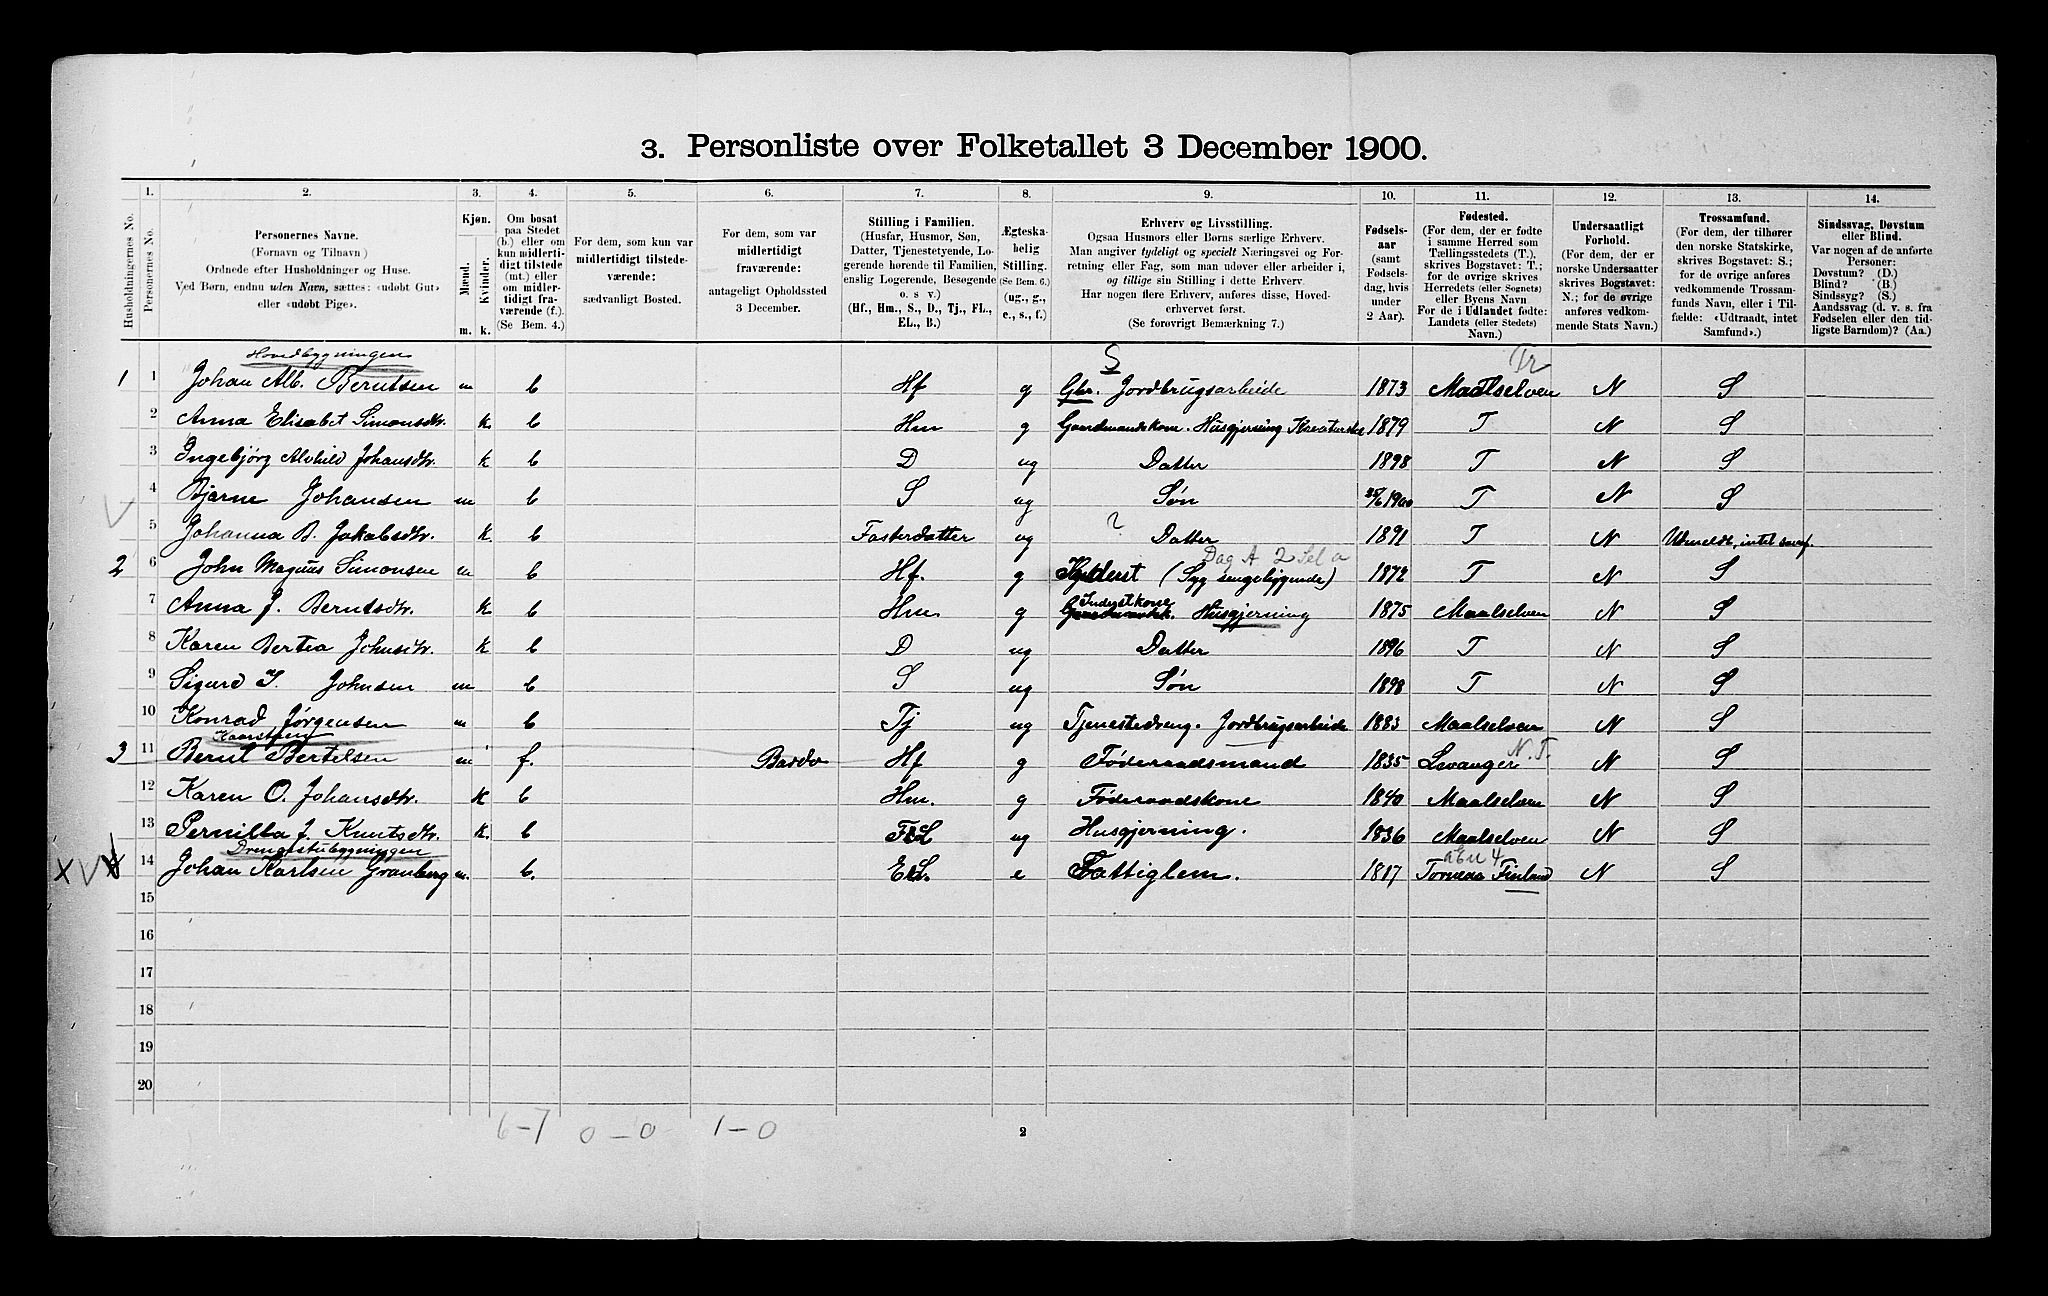 3. Personliste over Folketallet 3 December 1900.
1. 2. 3. 4. 5. 6. 7. 8. 9. 10. 11. 12. 13. 14.
Husholdningernes No.
Personernes No.
Personernes Navne.
(Fornavn og Tilnavn)
Ordnede efter Husholdninger og Huse.
Ved Børn, endnu uden Navn, sættes: «udøbt Gut»
eller «udøbt Pige».
Kjøn.
Mænd.
Kvinder.
m. k.
Om bosat
paa Stedet
(b.) eller om
kun midlerti-
digt tilstede
(mt.) eller
om midler-
tidigt fra-
værende (f.).
(Se Bem. 4.)
For dem, som kun var
midlertidigt tilstede-
værende:
sædvanligt Bosted.
For dem, som var
midlertidigt
fraværende:
antageligt Opholdssted
3 December.
Stilling i Familien.
(Husfar, Husmor, Søn,
Datter, Tjenestetyende, Lo-
gerende hørende til Familien,
enslig Logerende, Besøgende
o. s. v.)
(Hf., Hm., S., D., Tj., FL.,
EL., B.)
Ægteska-
belig
Stilling.
(Se Bem. 6.)
(ug., g.,
e., s., f.)
Erhverv og Livsstilling.
Ogsaa Husmors eller Børns særlige Erhverv.
Man angiver tydeligt og specielt Næringsvei og For-
retning eller Fag, som man udøver eller arbeider i,
og tillige sin Stilling i dette Erhverv.
Har nogen flere Erhverv, anføres disse, Hoved-
erhvervet først.
(Se forøvrigt Bemærkning 7.)
Fødsels-
aar
(samt
Fødsels-
dag, hvis
under
2 Aar).
Fødested.
(For dem, der er fødte
i samme Herred som
Tællingsstedets (T.),
skrives Bogstavet: T.;
for de øvrige skrives
Herredets (eller Sognets)
eller Byens Navn.
For de i Udlandet fødte:
Landets (eller Stedets)
Navn.)
Undersaatligt
Forhold.
(For dem, der er
norske Undersaatter
skrives Bogstavet:
N.; for de øvrige
anføres vedkom-
mende Stats Navn.)
Trossamfund.
(For dem, der tilhører
den norske Statskirke,
skrives Bogstavet: S.;
for de øvrige anføres
vedkommende Trossam-
funds Navn, eller i Til-
fælde: «Udtraadt, intet
Samfund».)
Sindssvag, Døvstum
eller Blind.
Var nogen af de anførte
Personer:
Døvstum? (D.)
Blind? (B.)
Sindssyg? (S.)
Aandssvag (d. v. s. fra
Fødselen eller den tid-
ligste Barndom)? (Aa.)
Hovedbygningen S Tr
1 1 Johan Alb. Berntsen m b Hf g Gbr. Jordbrugsarbeide 1873 Maalselven N S
2 Anna Elisabet Simonsdtr. k b Hm g Gaardmandskone. Husgjerning 1879 T N S
3 Ingebjørg Alvhild Johansdtr. k b D ug Datter 1898 T N S
4 Bjarne Johansen m b S ug Søn 25/6 1900 T N S
5 Johanna B. Jakobsdtr. k. b Fosterdatter ug ? Datter 1891 T N Udmeldt, intet samf.
Dag A 2 Sel a
2 6 John Magnus Simonsen m b Hf. g Inderst (Syg sengeliggende) 1872 T N S
Inderstkone
7 Anna J. Berntsdtr. k b Hm. g Husgjerning 1875 Maalselven N S
8 Karen Bertea Johnsdtr. k b D ug Datter 1896 T N S
9 Sigurd I. Johnsen m b S ug Søn 1898 T N S
10 Konrad Jørgensen m b Tj ug Tjenestedreng. Jordbrugsarbeide 1883 Maalselven N S
Kaarstuen N.T.
3 11 Bernt Bertelsen m f. Bardo Hf g Føderaadsmand 1835 Levanger N S
12 Karen O. Johansdtr. k b Hm. g Føderaadskone 1840 Maalselven N S
13 Pernilla J. Knutsdtr. k. b FL ug Husgjerning. 1836 Maalselven N S
Drengestubygningen
14 Johan Karlsen Granberg m. b. EL. e Fattiglem. 1817 Tornea Finland N S
15
16
17
18
19
20
6-7 0-0 1-0
2